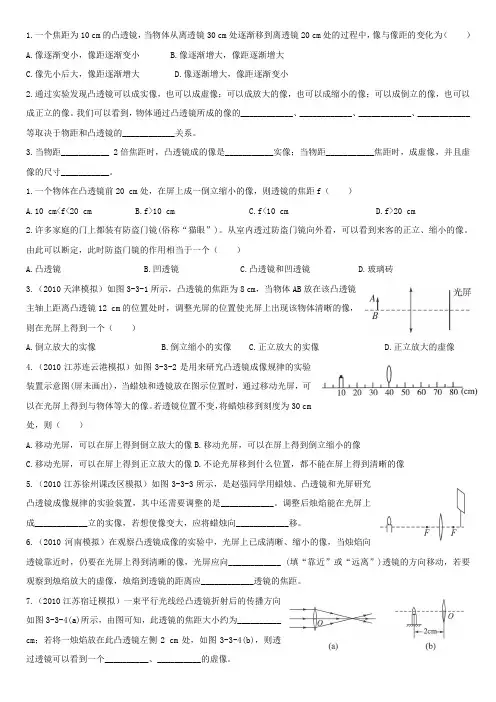 1.一个焦距为10 cm的凸透镜,当物体从离透镜30 cm处逐渐移到离透镜20 cm处的过程中,像与像距的变化为( )
A.像逐渐变小，像距逐渐变小 B.像逐渐增大，像距逐渐增大
C.像先小后大，像距逐渐增大 D.像逐渐增大，像距逐渐变小
2.通过实验发现凸透镜可以成实像，也可以成虚像；可以成放大的像，也可以成缩小的像；可以成倒立的像，也可以
成正立的像。我们可以看到，物体通过凸透镜所成的像的____________、____________、____________、____________
等取决于物距和凸透镜的____________关系。
3.当物距___________ 2倍焦距时，凸透镜成的像是___________实像；当物距___________焦距时，成虚像，并且虚
像的尺寸___________。
1.一个物体在凸透镜前20 cm处，在屏上成一倒立缩小的像，则透镜的焦距f（ ）
A.10 cm<f<20 cm B.f>10 cm C.f<10 cm D.f>20 cm
2.许多家庭的门上都装有防盗门镜(俗称“猫眼”)。从室内透过防盗门镜向外看，可以看到来客的正立、缩小的像。
由此可以断定，此时防盗门镜的作用相当于一个（ ）
A.凸透镜 B.凹透镜 C.凸透镜和凹透镜 D.玻璃砖
3.（2010天津模拟）如图3-3-1所示，凸透镜的焦距为8 cm,当物体AB放在该凸透镜
主轴上距离凸透镜12 cm的位置处时，调整光屏的位置使光屏上出现该物体清晰的像，
则在光屏上得到一个（ ）
光屏
A
B
A.倒立放大的实像 B.倒立缩小的实像 C.正立放大的实像 D.正立放大的虚像
4.（2010江苏连云港模拟）如图3-3-2是用来研究凸透镜成像规律的实验
装置示意图(屏未画出),当蜡烛和透镜放在图示位置时，通过移动光屏，可
以在光屏上得到与物体等大的像。若透镜位置不变,将蜡烛移到刻度为30 cm
处，则（ ）
10 20 30 40 50 60 70 80 (cm)
A.移动光屏，可以在屏上得到倒立放大的像B.移动光屏，可以在屏上得到倒立缩小的像
C.移动光屏，可以在屏上得到正立放大的像D.不论光屏移到什么位置，都不能在屏上得到清晰的像
5.（2010江苏徐州课改区模拟）如图3-3-3所示，是赵强同学用蜡烛、凸透镜和光屏研究
凸透镜成像规律的实验装置，其中还需要调整的是____________。调整后烛焰能在光屏上
成____________立的实像，若想使像变大，应将蜡烛向____________移。
F F
6.（2010河南模拟）在观察凸透镜成像的实验中，光屏上已成清晰、缩小的像，当烛焰向
透镜靠近时，仍要在光屏上得到清晰的像，光屏应向____________ (填“靠近”或“远离”)透镜的方向移动，若要
观察到烛焰放大的虚像，烛焰到透镜的距离应____________透镜的焦距。
7.（2010江苏宿迁模拟）一束平行光线经凸透镜折射后的传播方向
如图3-3-4(a)所示，由图可知，此透镜的焦距大小约为__________
cm；若将一烛焰放在此凸透镜左侧2 cm处，如图3-3-4(b)，则透
过透镜可以看到一个__________、__________的虚像。
O
(a)
O
2cm
(b)